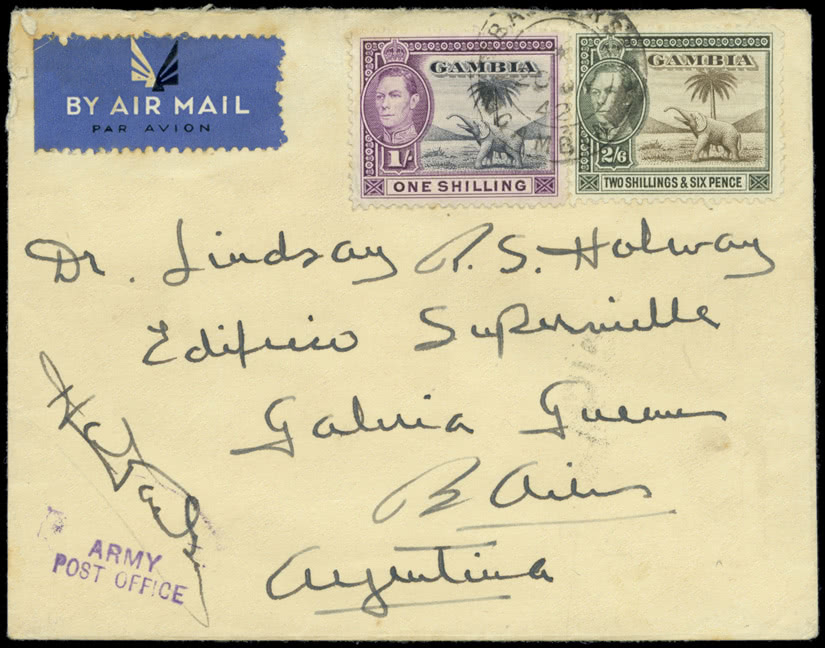 BY AIR MAIL
PAR AVION
GAMBIA
1/-
ONE SHILLING
GAMBIA
2/6
TWO SHILLINGS & SIX PENCE
Dr. Lindsay R. S. Holway
Edificio Supervielle
Galeria Guemes
B Aires
Argentina
ARMY
POST OFFICE